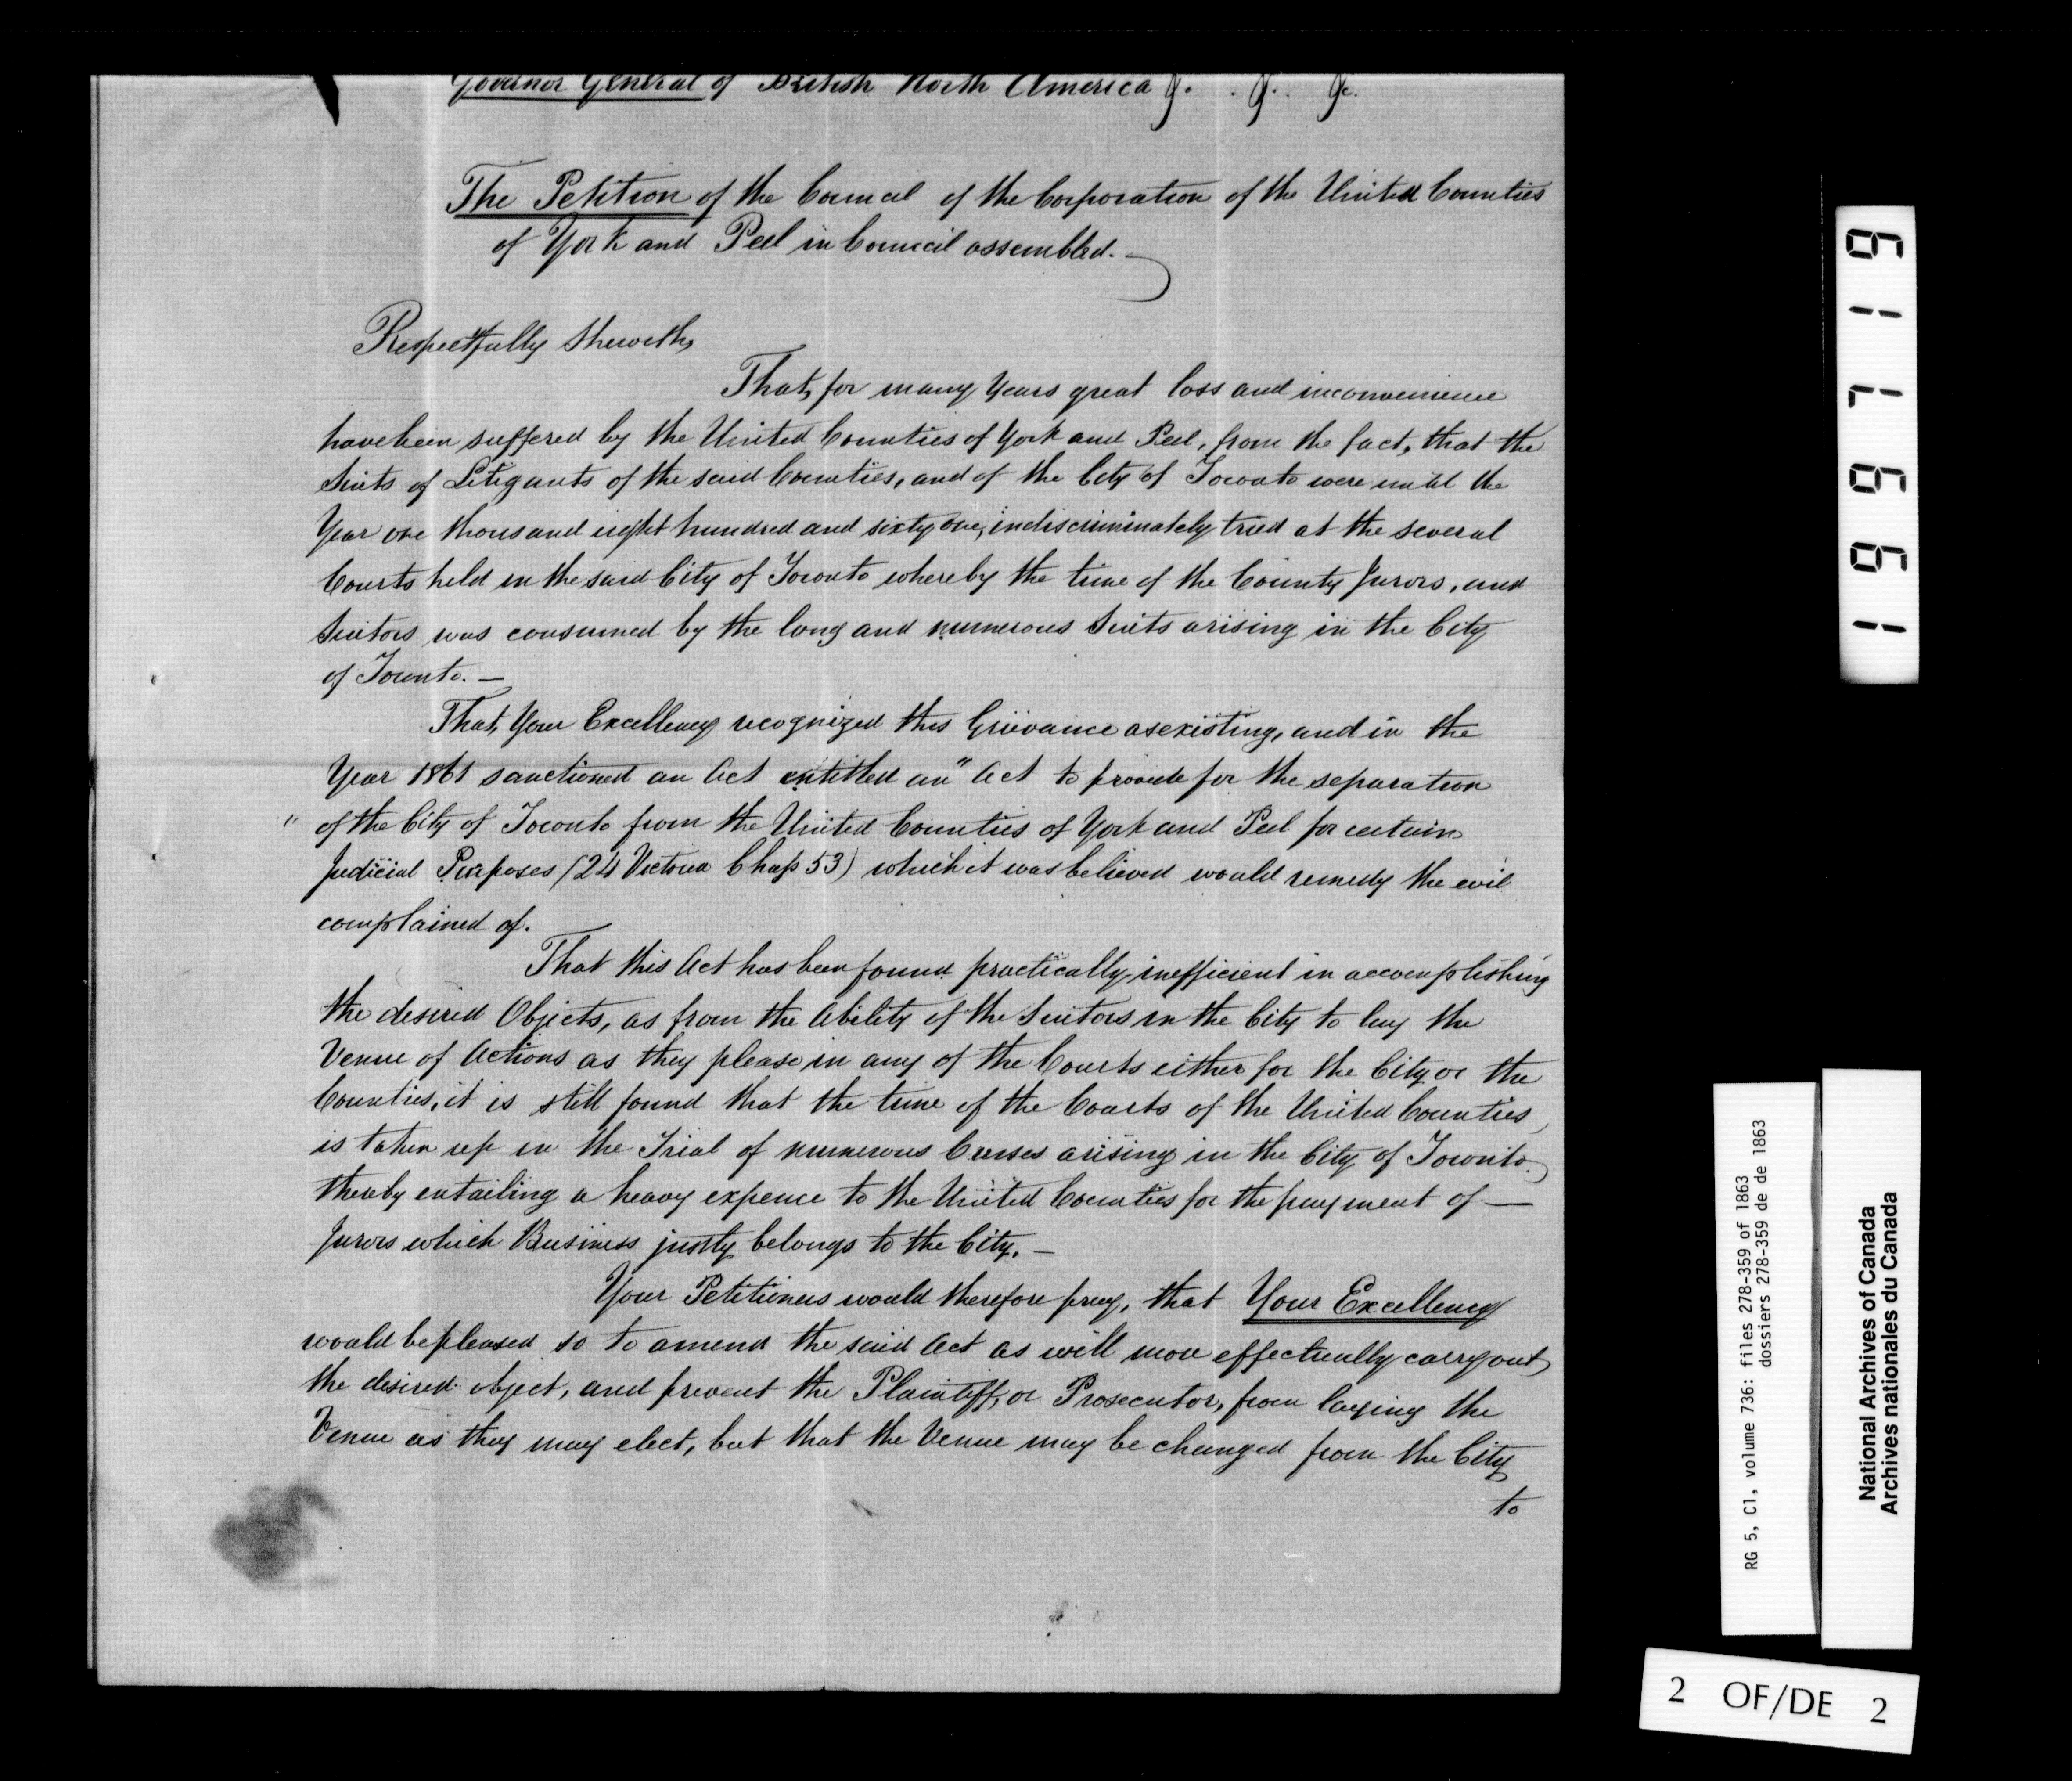 Governor General of British North America &c. &c. &c.
The Petition of the Council of the Corporation of the United Counties
of York and Peel in Council assembled. —
Respectfully Sheweth,
That, for many Years great loss and inconvenience
have been suffered by the United Counties of York and Peel, from the fact, that the
Suits of Litigants of the said Counties, and of the City of Toronto were until the
Year one thousand eight hundred and sixty one, indiscriminately tried at the several
Courts held in the said City of Toronto whereby the time of the County Jurors, and
Suitors was consumed by the long and numerous Suits arising in the City
of Toronto. —
That, Your Excellency recognized this Grievance as existing, and in the
Year 1861 sanctioned an Act entitled an " Act to provide for the separation
" of the City of Toronto from the United Counties of York and Peel for certain
Judicial Purposes (24 Victoria Chap 53) which it was believed would remedy the evil
complained of.
That this Act has been found practically inefficient in accomplishing
the desired Objects, as from the Ability of the Suitors in the City to lay the
Venue of Actions as they please in any of the Courts either for the City or the
Counties, it is still found that the time of the Courts of the United Counties,
is taken up in the Trial of numerous Causes arising in the City of Toronto.
thereby entailing a heavy expence to the United Counties for the payment of —
Jurors which Business justly belongs to the City. —
Your Petitioners would therefore pray, that Your Excellency
would be pleased so to amend the said Act as will more effectually carry out
the desired object, and prevent the Plaintiff, or Prosecutor, from laying the
Venue as they may elect, but that the Venue may be changed from the City
to
196719
RG 5, C1, volume 736: files 278-359 of 1863
dossiers 278-359 de de 1863
National Archives of Canada
Archives nationales du Canada
2 OF/DE 2